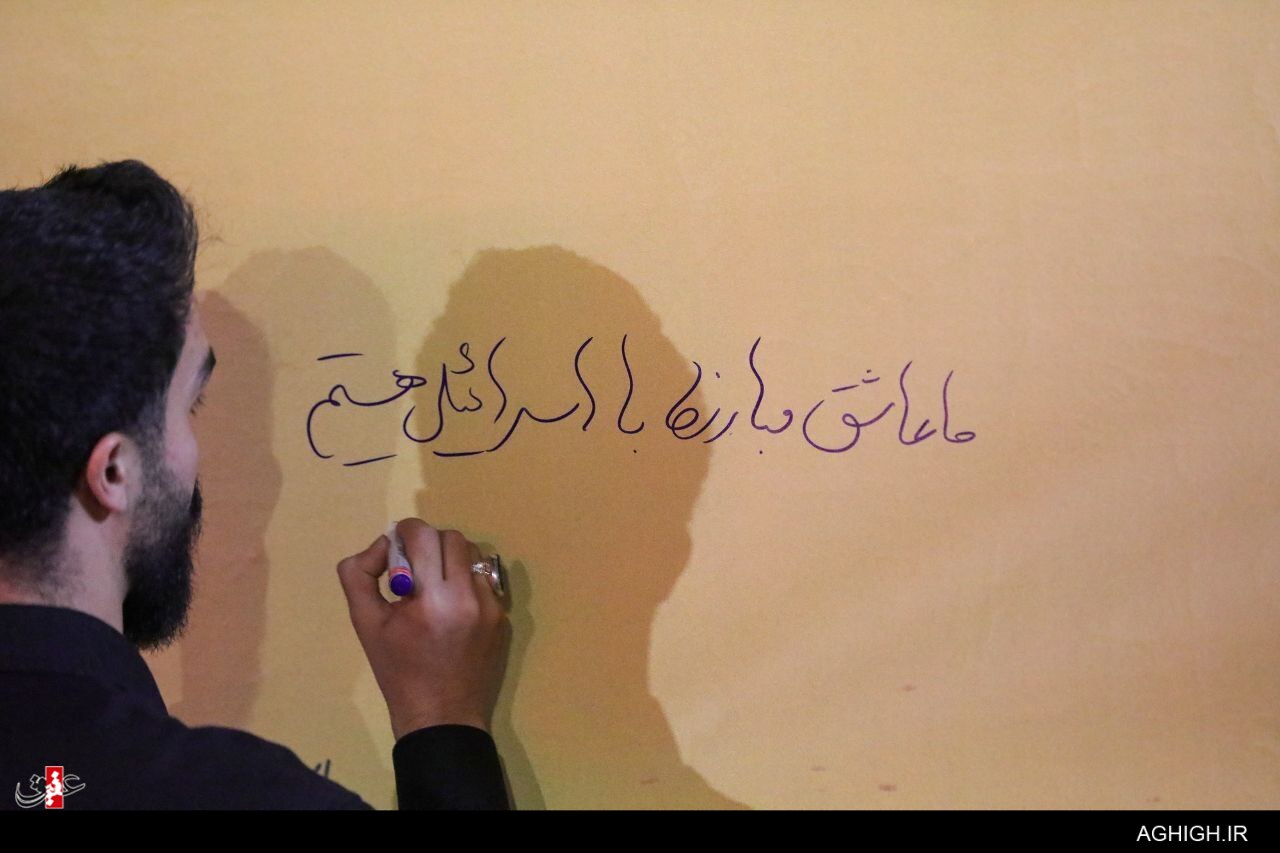 ما عاشق مبارزه با اسرائیل هستیم
عقیق
AGHIGH.IR